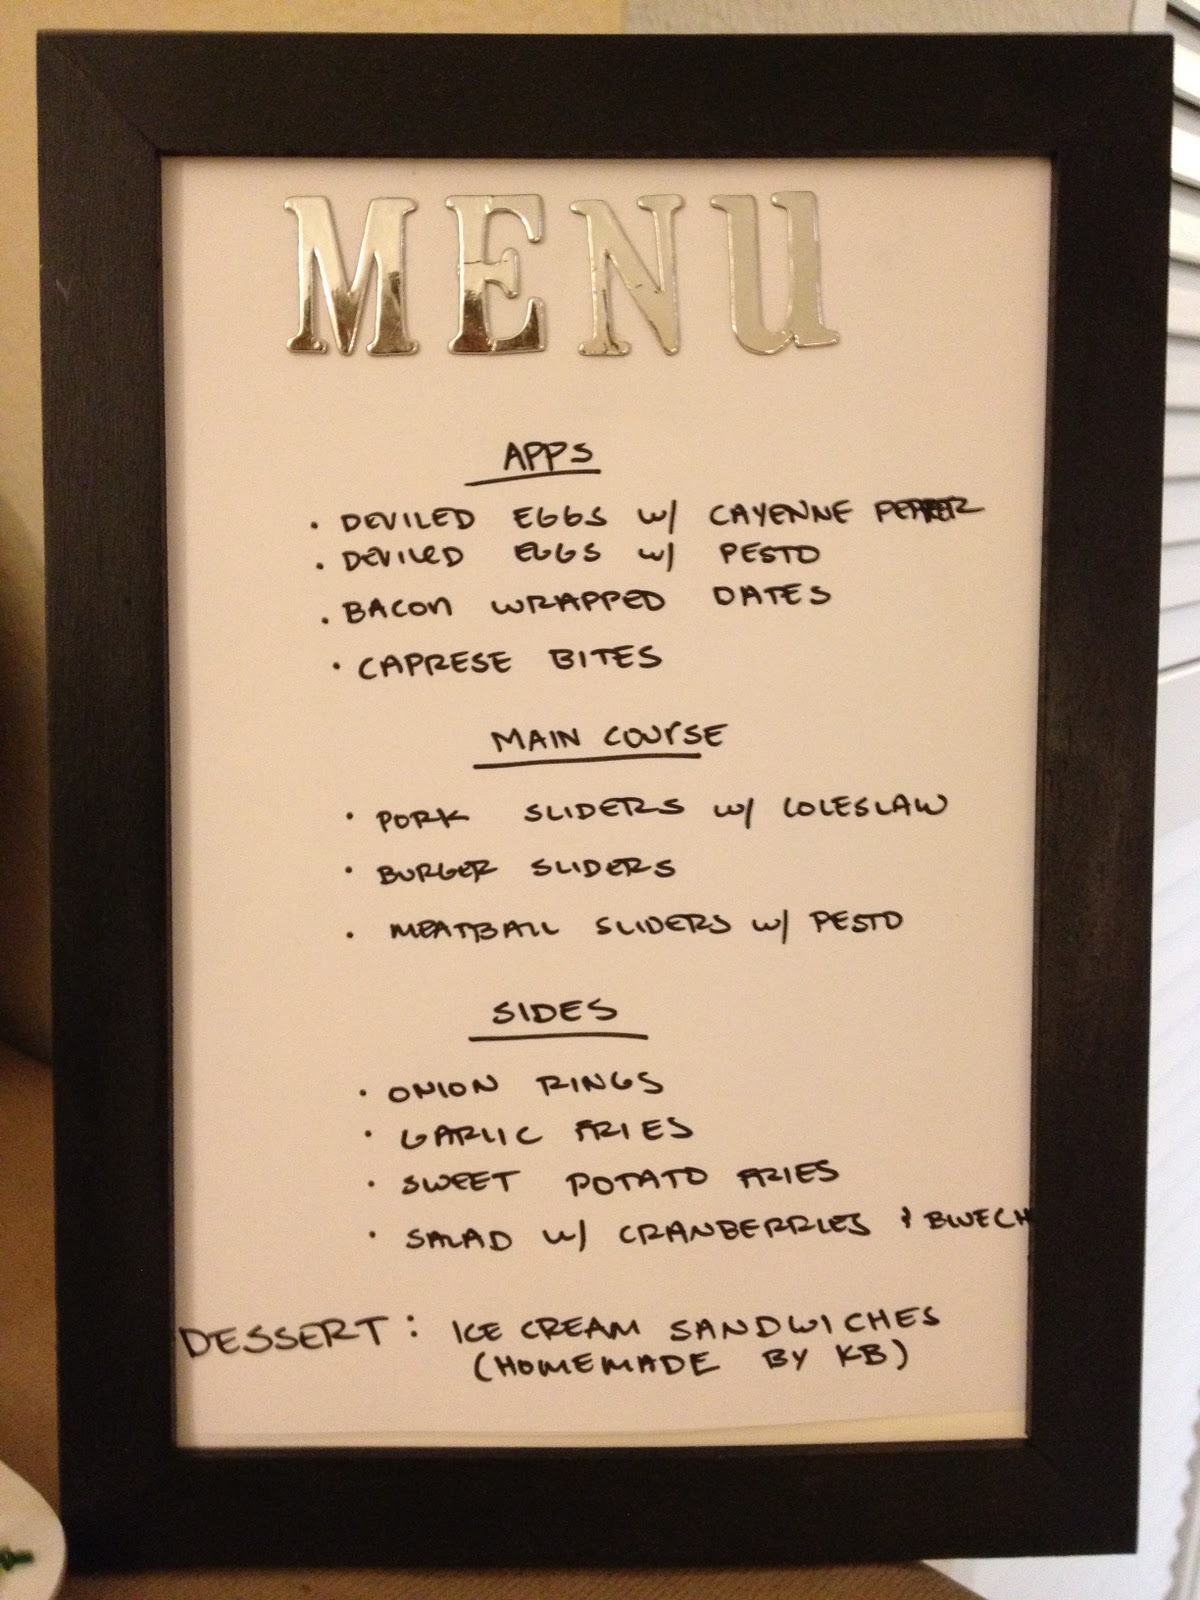 MENU
APPS
· DEVILED EGGS W/ CAYENNE PEPPER
· DEVILED EGGS W/ PESTO
· BACON WRAPPED DATES
· CAPRESE BITES
MAIN COURSE
· PORK SLIDERS W/ COLESLAW
· BURGER SLIDERS
· MEATBALL SLIDERS W/ PESTO
SIDES
· ONION RINGS
· GARLIC FRIES
· SWEET POTATO FRIES
· SALAD W/ CRANBERRIES & BLUECH
DESSERT: ICE CREAM SANDWICHES
(HOMEMADE BY KB)